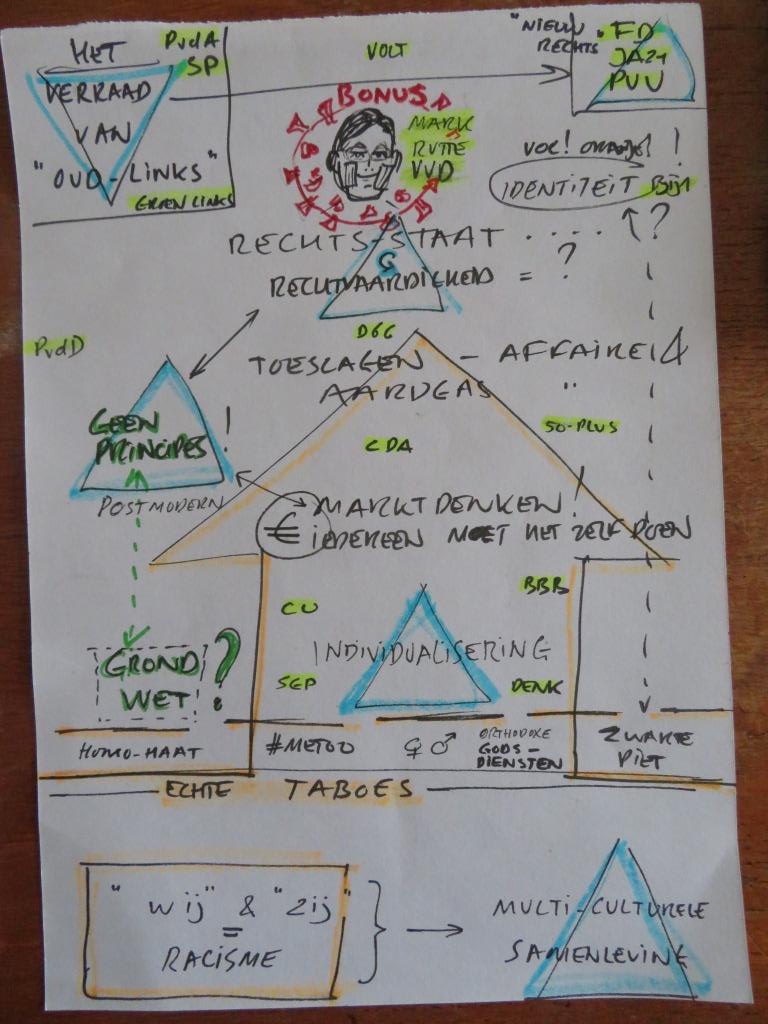 HET
VERRAAD
VAN
"OUD-LINKS"
PvdA
SP
GROEN LINKS
VOLT
"NIEUW
RECHTS"
FD
JA21
PVV
BONUS
MARK
RUTTE
VVD
VOC!
!
IDENTITEIT BIJ1
RECHTS-STAAT . . . . . ?
G
RECHTVAARDIGHEID = ?
D66
PvdD
TOESLAGEN - AFFAIRE
AARDGAS "
50-PLUS
CDA
GEEN
PRINCIPES!
POSTMODERN
MARKTDENKEN!
€ IEDEREEN MOET HET ZELF DOEN
BBB
CU
INDIVIDUALISERING
SGP
DENK
GROND
WET?
HOMO-HAAT
#METOO
♀ ♂
ORTHODOXE
GODS-
DIENSTEN
ZWARTE
PIET
ECHTE TABOES
"wij" & "zij"
=
RACISME
MULTI-CULTURELE
SAMENLEVING